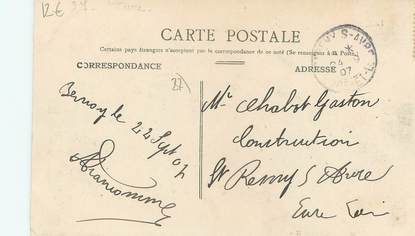 12€
27
CARTE POSTALE
Certains pays étrangers n'acceptent pas la correspondance de ce coté (Se renseigner à la Poste)
CORRESPONDANCE
ADRESSE
S-AVRE
07
27
Bernay le
22 Sept 07
Mr Chabot Gaston
Construction
St Remy S Avre
Eure Loir